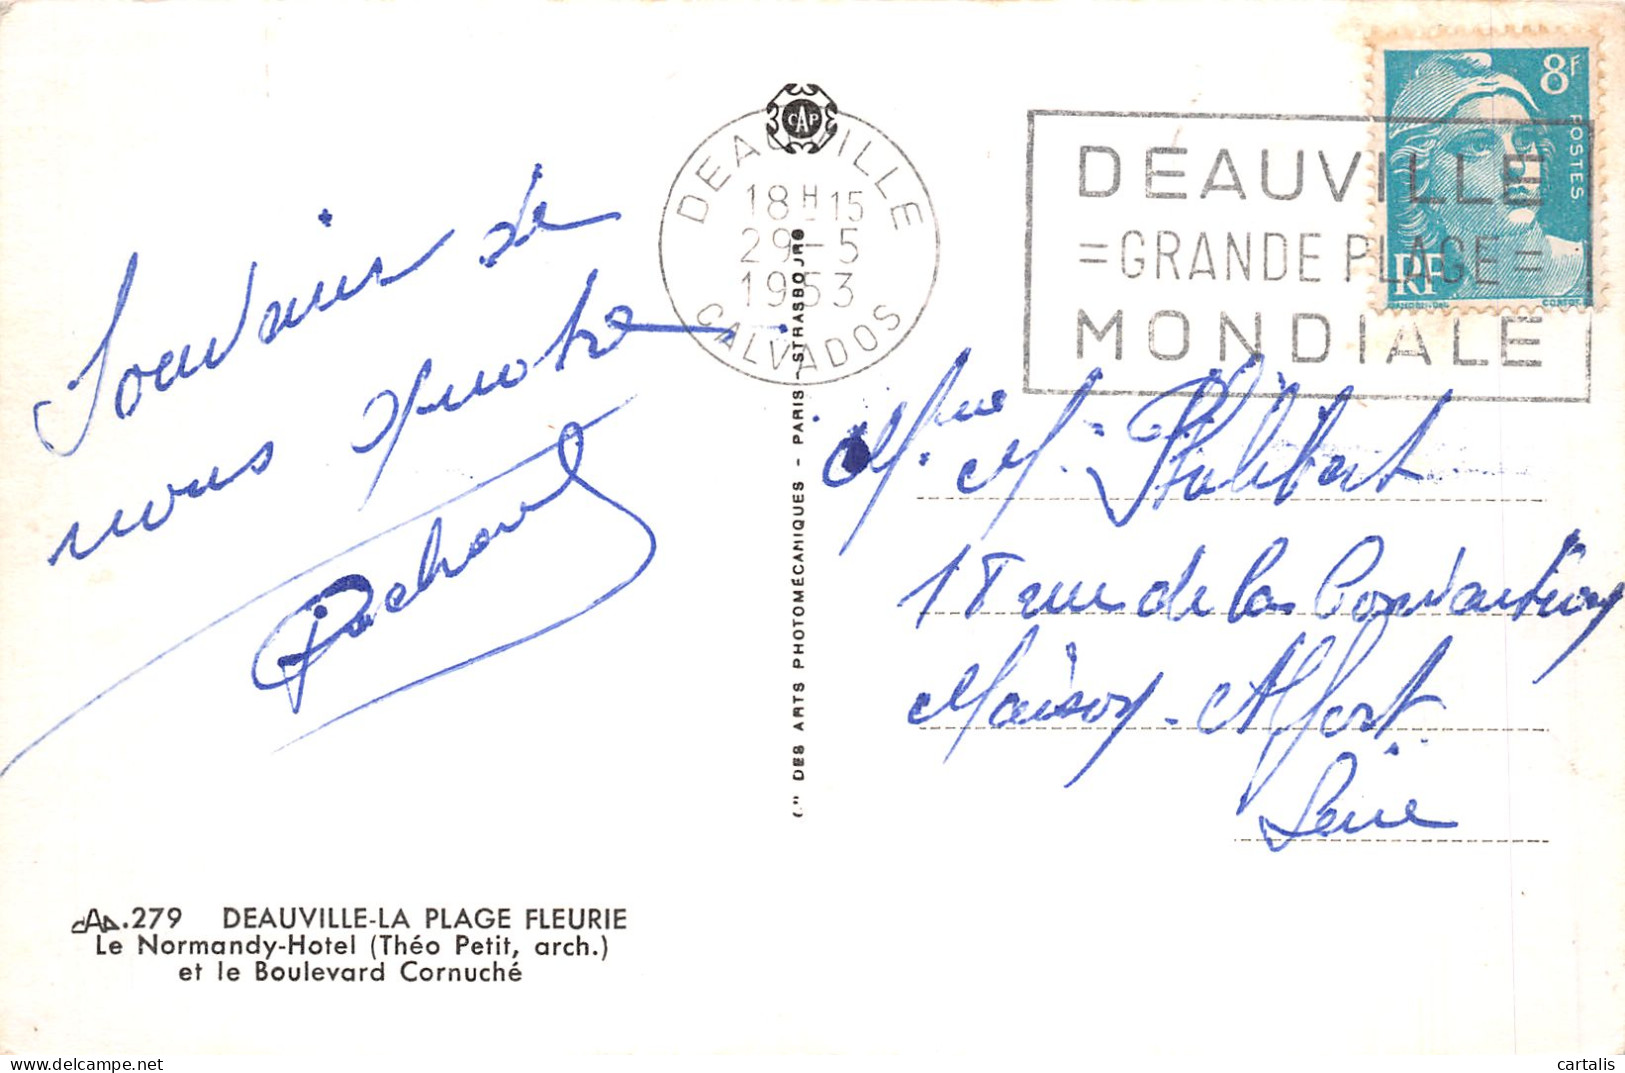 Souvenirs de
nous quatre
DEAUVILLE
18H15
29-5
1953
CALVADOS
CAP
DEAUVILLE
=GRANDE PLAGE=
MONDIALE
8F
POSTES
RF
Mme M. Philibert
18 rue de la
Maison-Alfort
Seine
Cie DES ARTS PHOTOMÉCANIQUES - PARIS - STRASBOURG
CAP.279 DEAUVILLE-LA PLAGE FLEURIE
Le Normandy-Hotel (Théo Petit, arch.)
et le Boulevard Cornuché
cartalis